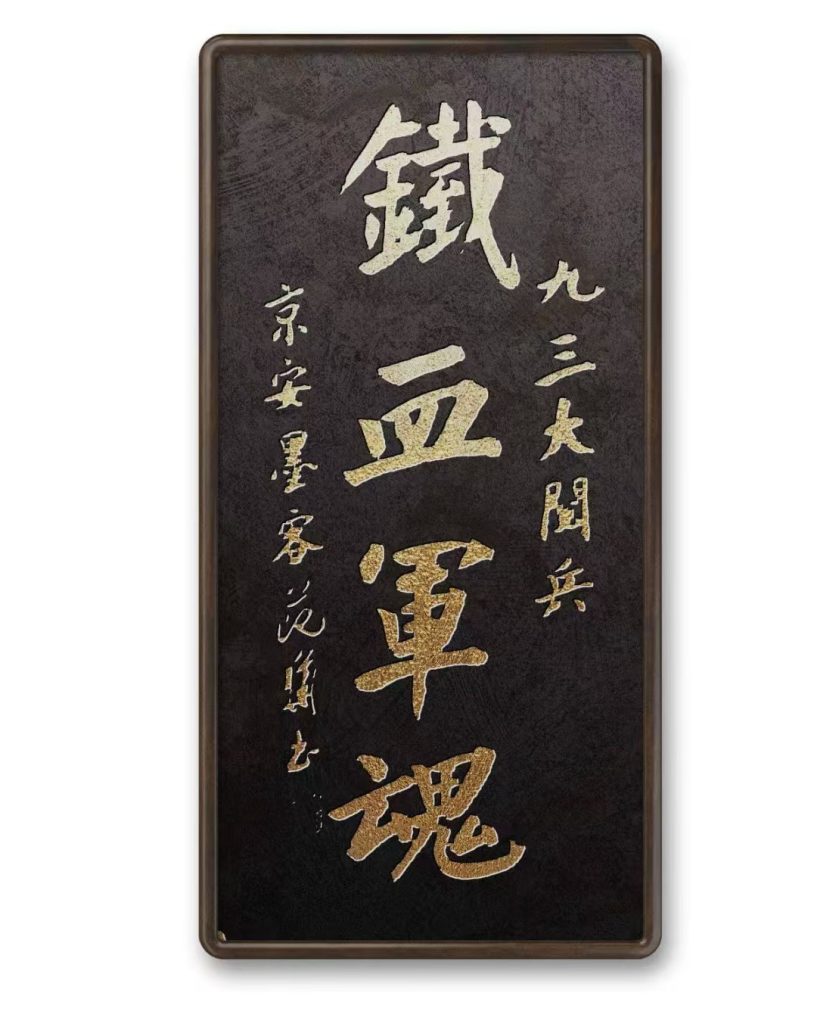 九三大閱兵
鐵血軍魂
京安墨客范 书